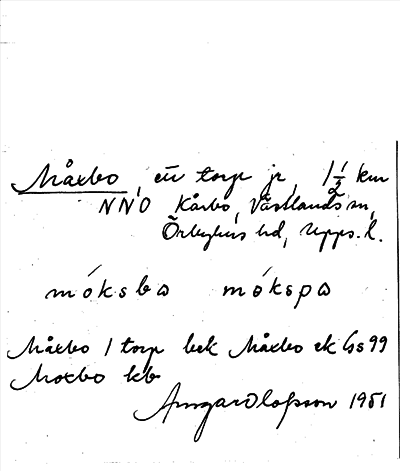 Måxbo, ett torp jr, 1 1/2 km
NNO Kårbo, Västlands sn,
Örbyhus hd, Upps. l.
móksbɷ mókspɷ
Måxbo 1 torp bek Måxbo ek Gs 99
Moxbo kb
Amgard Olofsson 1951